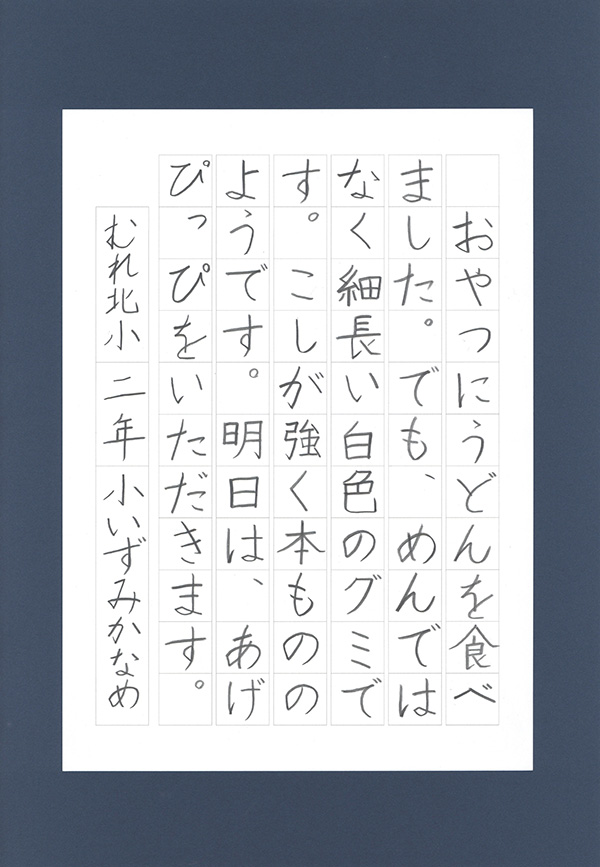 おやつにうどんを食べ
ました。でも、めんでは
なく細長い白色のグミで
す。こしが強く本ものの
ようです。明日は、あげ
ぴっぴをいただきます。
むれ北小 二年 小いずみかなめ